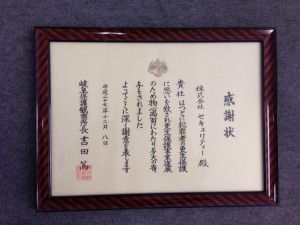 感謝状
株式会社 セキュリティー 殿
貴社はつとに犯罪者の更生保護
に思いを致され更生保護事業進展
のため物心両面にわたり多大の寄
与をされました
よってここに深く謝意を表します
平成二十七年十二月八日
岐阜保護観察所長 吉田 篤